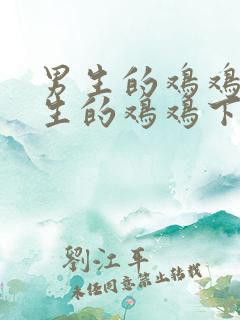 男生的鸡鸡
生的鸡鸡下
劉江平
未经同意禁止转载